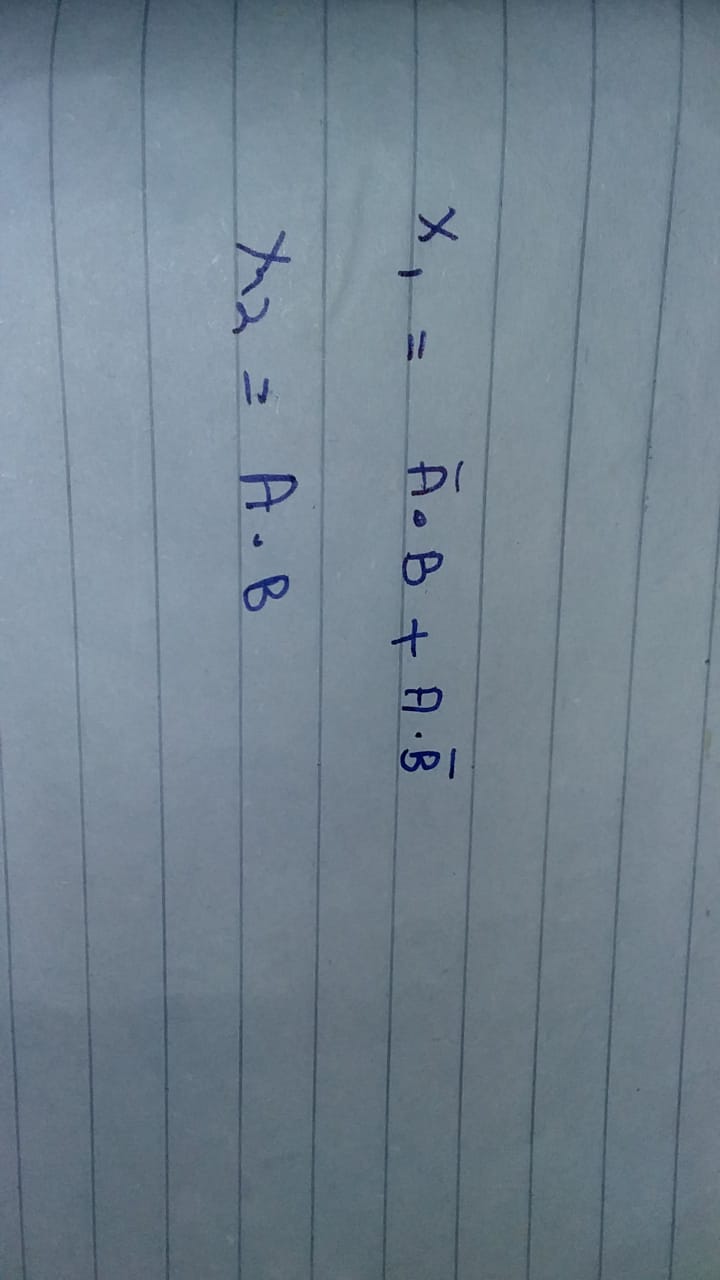 X₁ = A̅·B + A·B̅
X₂ = A·B